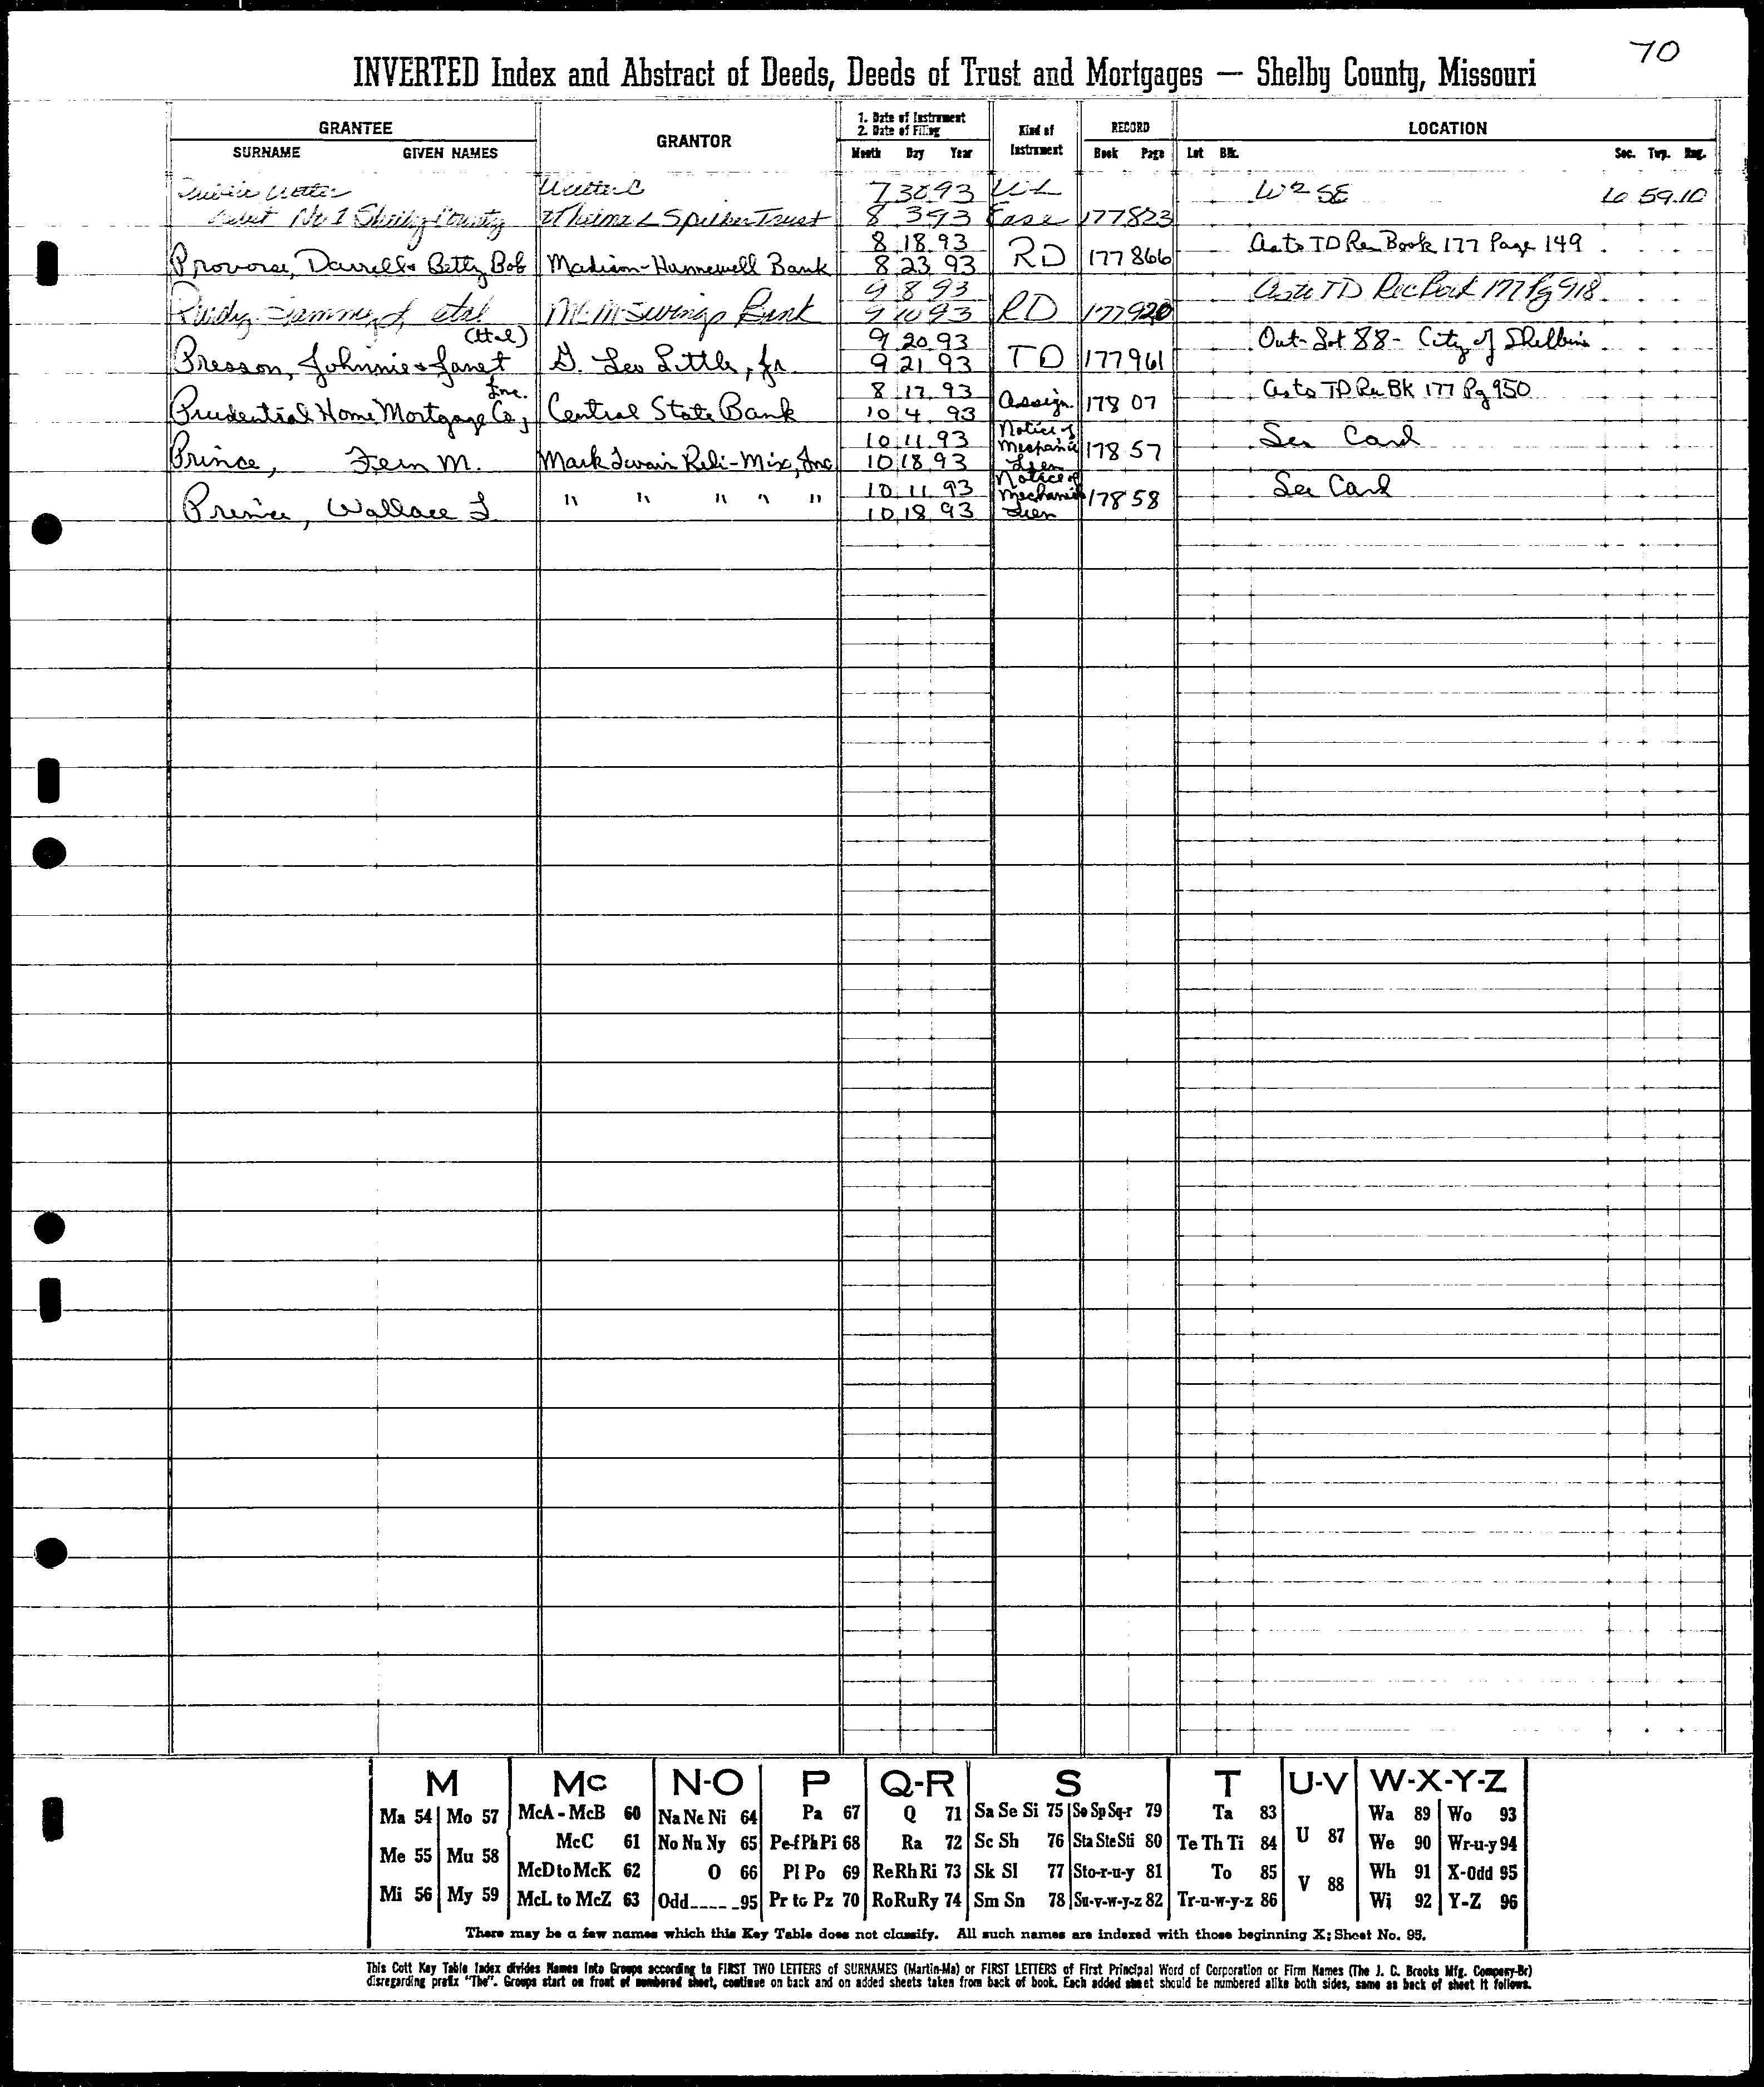 70
INVERTED Index and Abstract of Deeds, Deeds of Trust and Mortgages — Shelby County, Missouri
GRANTEE
SURNAME GIVEN NAMES
GRANTOR
1. Date of Instrument
2. Date of Filing
Month Day Year
Kind of
Instrument
RECORD
Book Page
LOCATION
Lot Blk. Sec. Twp. Rng.
Water Walter C 7 30 93 W L W2 SE 6 59 10
No 1 Shelby County & Thelma L Spieker Trust 8 3 93 Ease 177 823
8 18 93 as to TD Rec Book 177 Page 149
Provorse, Darrell & Betty Bob Madison-Hunnewell Bank 8 23 93 RD 177 866
9 8 93 as to TD Rec Book 177 Pg 918
et al M-M Savings Bank 9 10 93 RD 177 920
(et al) 9 20 93 Out-Lot 88- City of Shelbina
Presson, Johnnie & Janet G. Leo Little, Jr. 9 21 93 TD 177 961
Inc. 8 17 93 as to TD Rec BK 177 Pg 950
Prudential Home Mortgage Co., Central State Bank 10 4 93 Assign. 178 07
10 11 93 Notice of See Card
Prince, Fern M. Mark Twain Redi-Mix, Inc 10 18 93 Mechanic Lien 178 57
10 11 93 Notice of See Card
Prince, Wallace F. " " " " " 10 18 93 Mechanic Lien 178 58
M Mc N-O P Q-R S T U-V W-X-Y-Z
Ma 54 Mo 57 McA - McB 60 Na Ne Ni 64 Pa 67 Q 71 Sa Se Si 75 So Sp Sq-r 79 Ta 83 Wa 89 Wo 93
Me 55 Mu 58 McC 61 No Nu Ny 65 Pe-f Ph Pi 68 Ra 72 Sc Sh 76 Sta Ste Sti 80 Te Th Ti 84 U 87 We 90 Wr-u-y 94
McD to McK 62 O 66 Pl Po 69 Re Rh Ri 73 Sk Sl 77 Sto-r-u-y 81 To 85 V 88 Wh 91 X-Odd 95
Mi 56 My 59 McL to McZ 63 Odd_____95 Pr to Pz 70 Ro Ru Ry 74 Sm Sn 78 Su-v-w-y-z 82 Tr-u-w-y-z 86 Wi 92 Y-Z 96
There may be a few names which this Key Table does not classify. All such names are indexed with those beginning X; Sheet No. 95.
This Cott Key Table Index divides Names Into Groups according to FIRST TWO LETTERS of SURNAMES (Martin-Ma) or FIRST LETTERS of First Principal Word of Corporation or Firm Names (The J. C. Brooks Mfg. Company-Br)
disregarding prefix "The". Groups start on front of numbered sheet, continue on back and on added sheets taken from back of book. Each added sheet should be numbered alike both sides, same as back of sheet it follows.